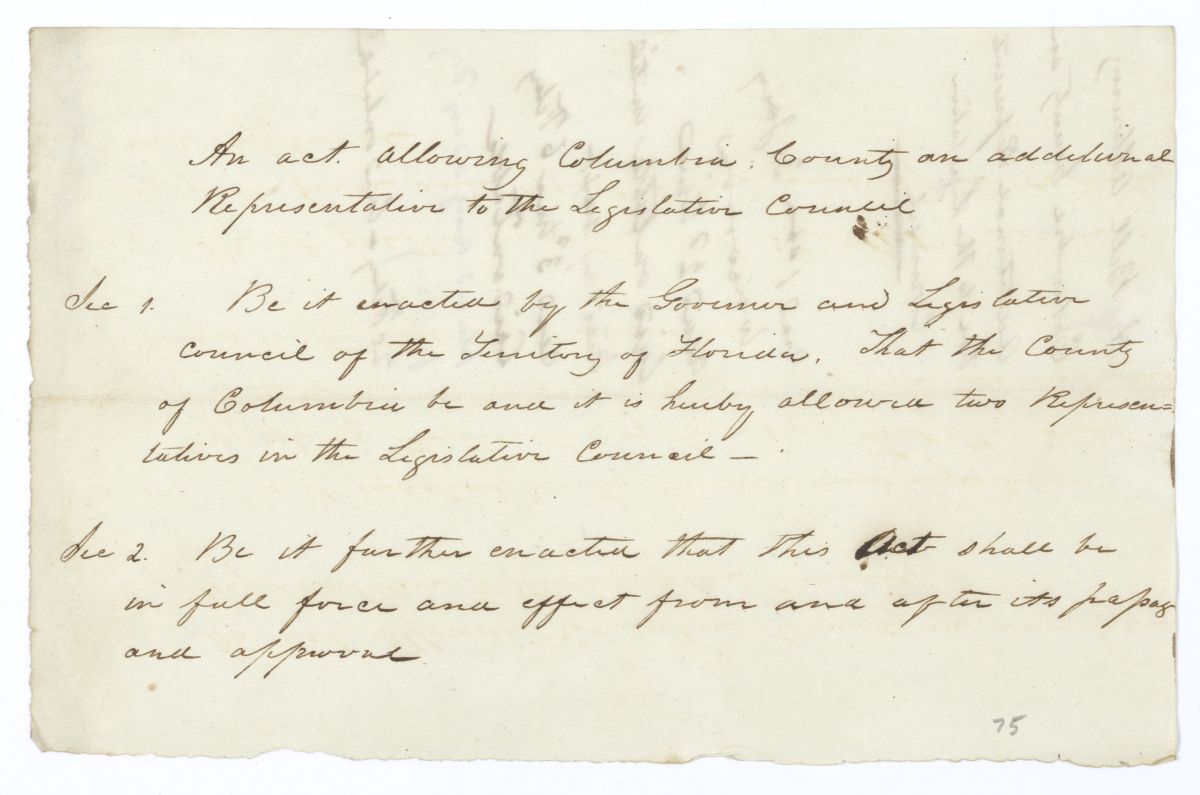 An act. allowing Columbia. County an additional
Representative to the Legislative Council
Sec 1. Be it enacted by the Governor and Legislative
council of the Territory of Florida. That the County
of Columbia be and it is hereby allowed two Represen=
tatives in the Legislative Council –
Sec 2. Be it further enacted that this Act shall be
in full force and effect from and after its passag
and approval
75